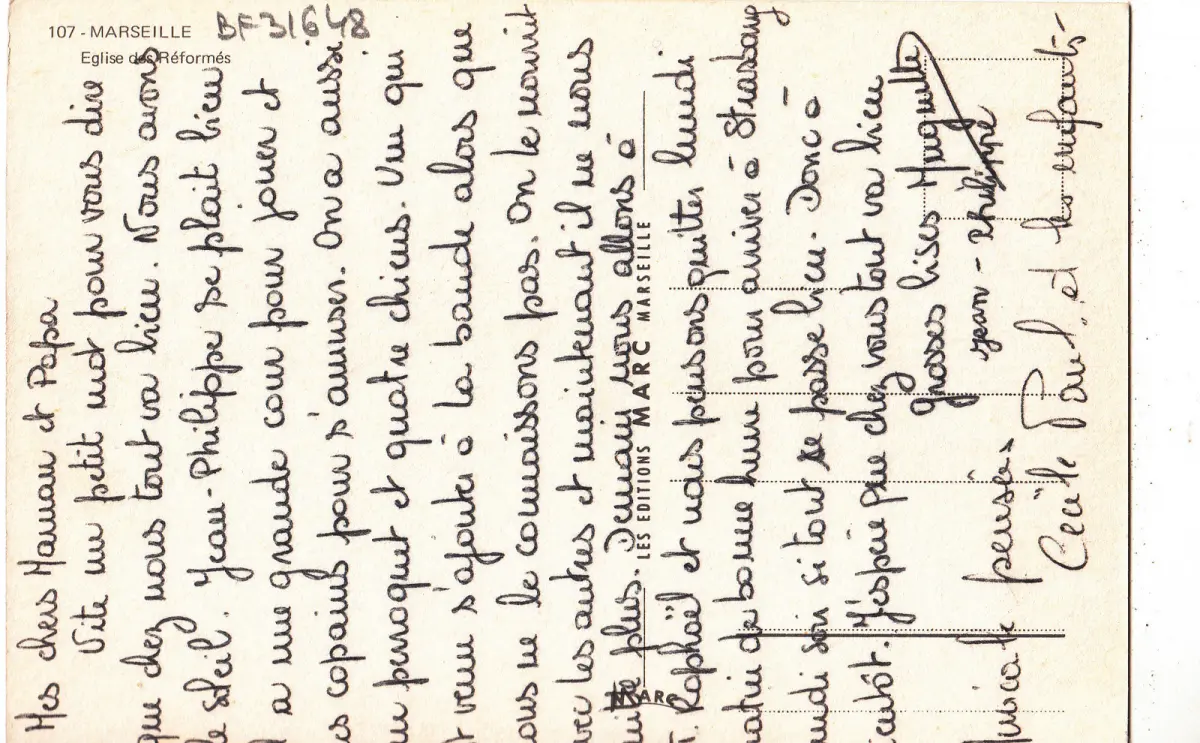 107 - MARSEILLE
Eglise des Réformés
BF31648
Mes chers Maman et Papa
Vite un petit mot pour vous dire
que chez nous tout va bien. Nous avons
le soleil. Jean-Philippe se plait bien
a une grande cour pour jouer et
s copains pour s'amuser. On a aussi
un perroquet et quatre chiens. Un qui
t venu s'ajouter à la bande alors que
ous ne le connaissons pas. On le nourit
avec les autres et maintenant il ne nous
uitte plus. Demain nous allons à
T. Raphaël et nous pensons quitter lundi
matin de bonne heure pour arriver à Strasbourg
undi soir si tout se passe bien. Donc à
ientôt. J'espère que chez vous tout va bien
grosses bises Muguette
jean-philippe
Amicale pensées
Cécile Paul, et les enfants-
LES EDITIONS MARC MARSEILLE
MARC